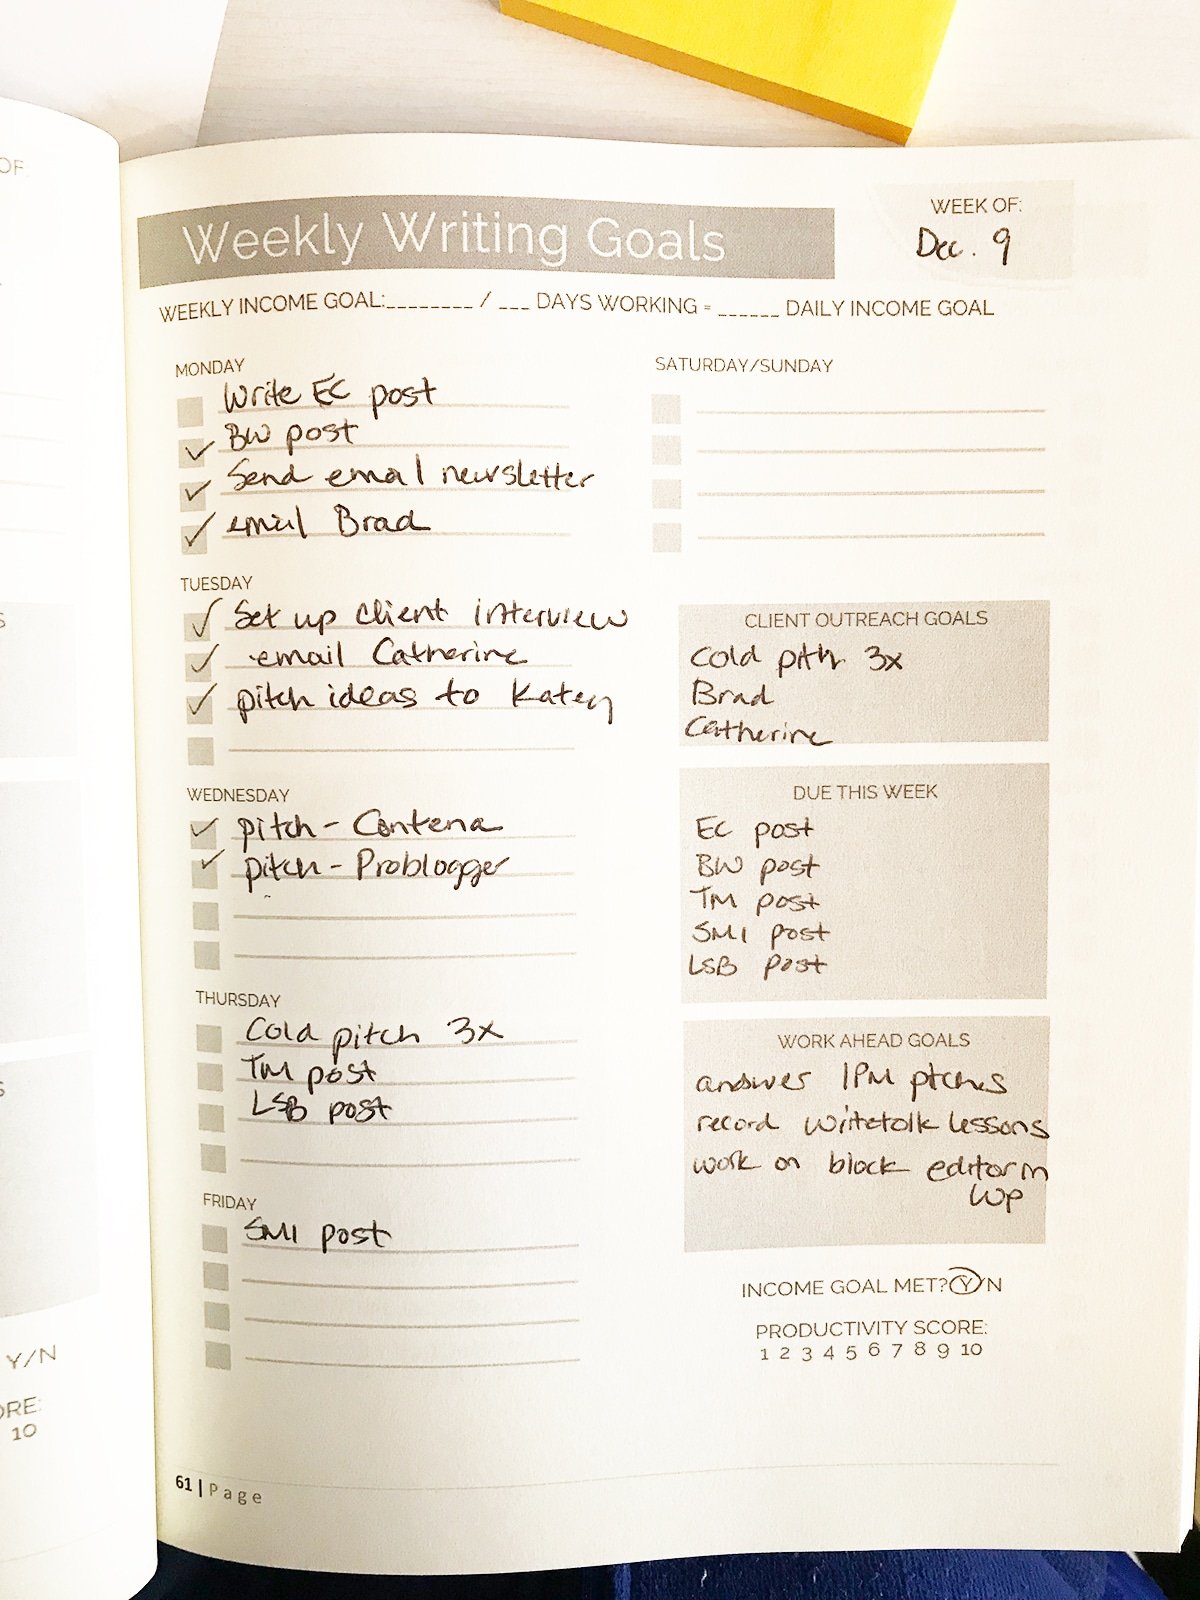 OF:
Weekly Writing Goals
WEEK OF:
Dec. 9
WEEKLY INCOME GOAL:________ / ___ DAYS WORKING = ______ DAILY INCOME GOAL
MONDAY
Write EC post
BW post
Send email newsletter
email Brad
TUESDAY
Set up client interview
email Catherine
pitch ideas to Katey
WEDNESDAY
pitch - Contena
pitch - Problogger
THURSDAY
Cold pitch 3x
TM post
LSB post
FRIDAY
SMI post
SATURDAY/SUNDAY
CLIENT OUTREACH GOALS
Cold pitch 3x
Brad
Catherine
DUE THIS WEEK
EC post
BW post
TM post
SMI post
LSB post
WORK AHEAD GOALS
answer IPM ptches
record writetolk lessons
work on block editor in
WP
INCOME GOAL MET? Y/N
PRODUCTIVITY SCORE:
1 2 3 4 5 6 7 8 9 10
61 | Page
Y/N
10